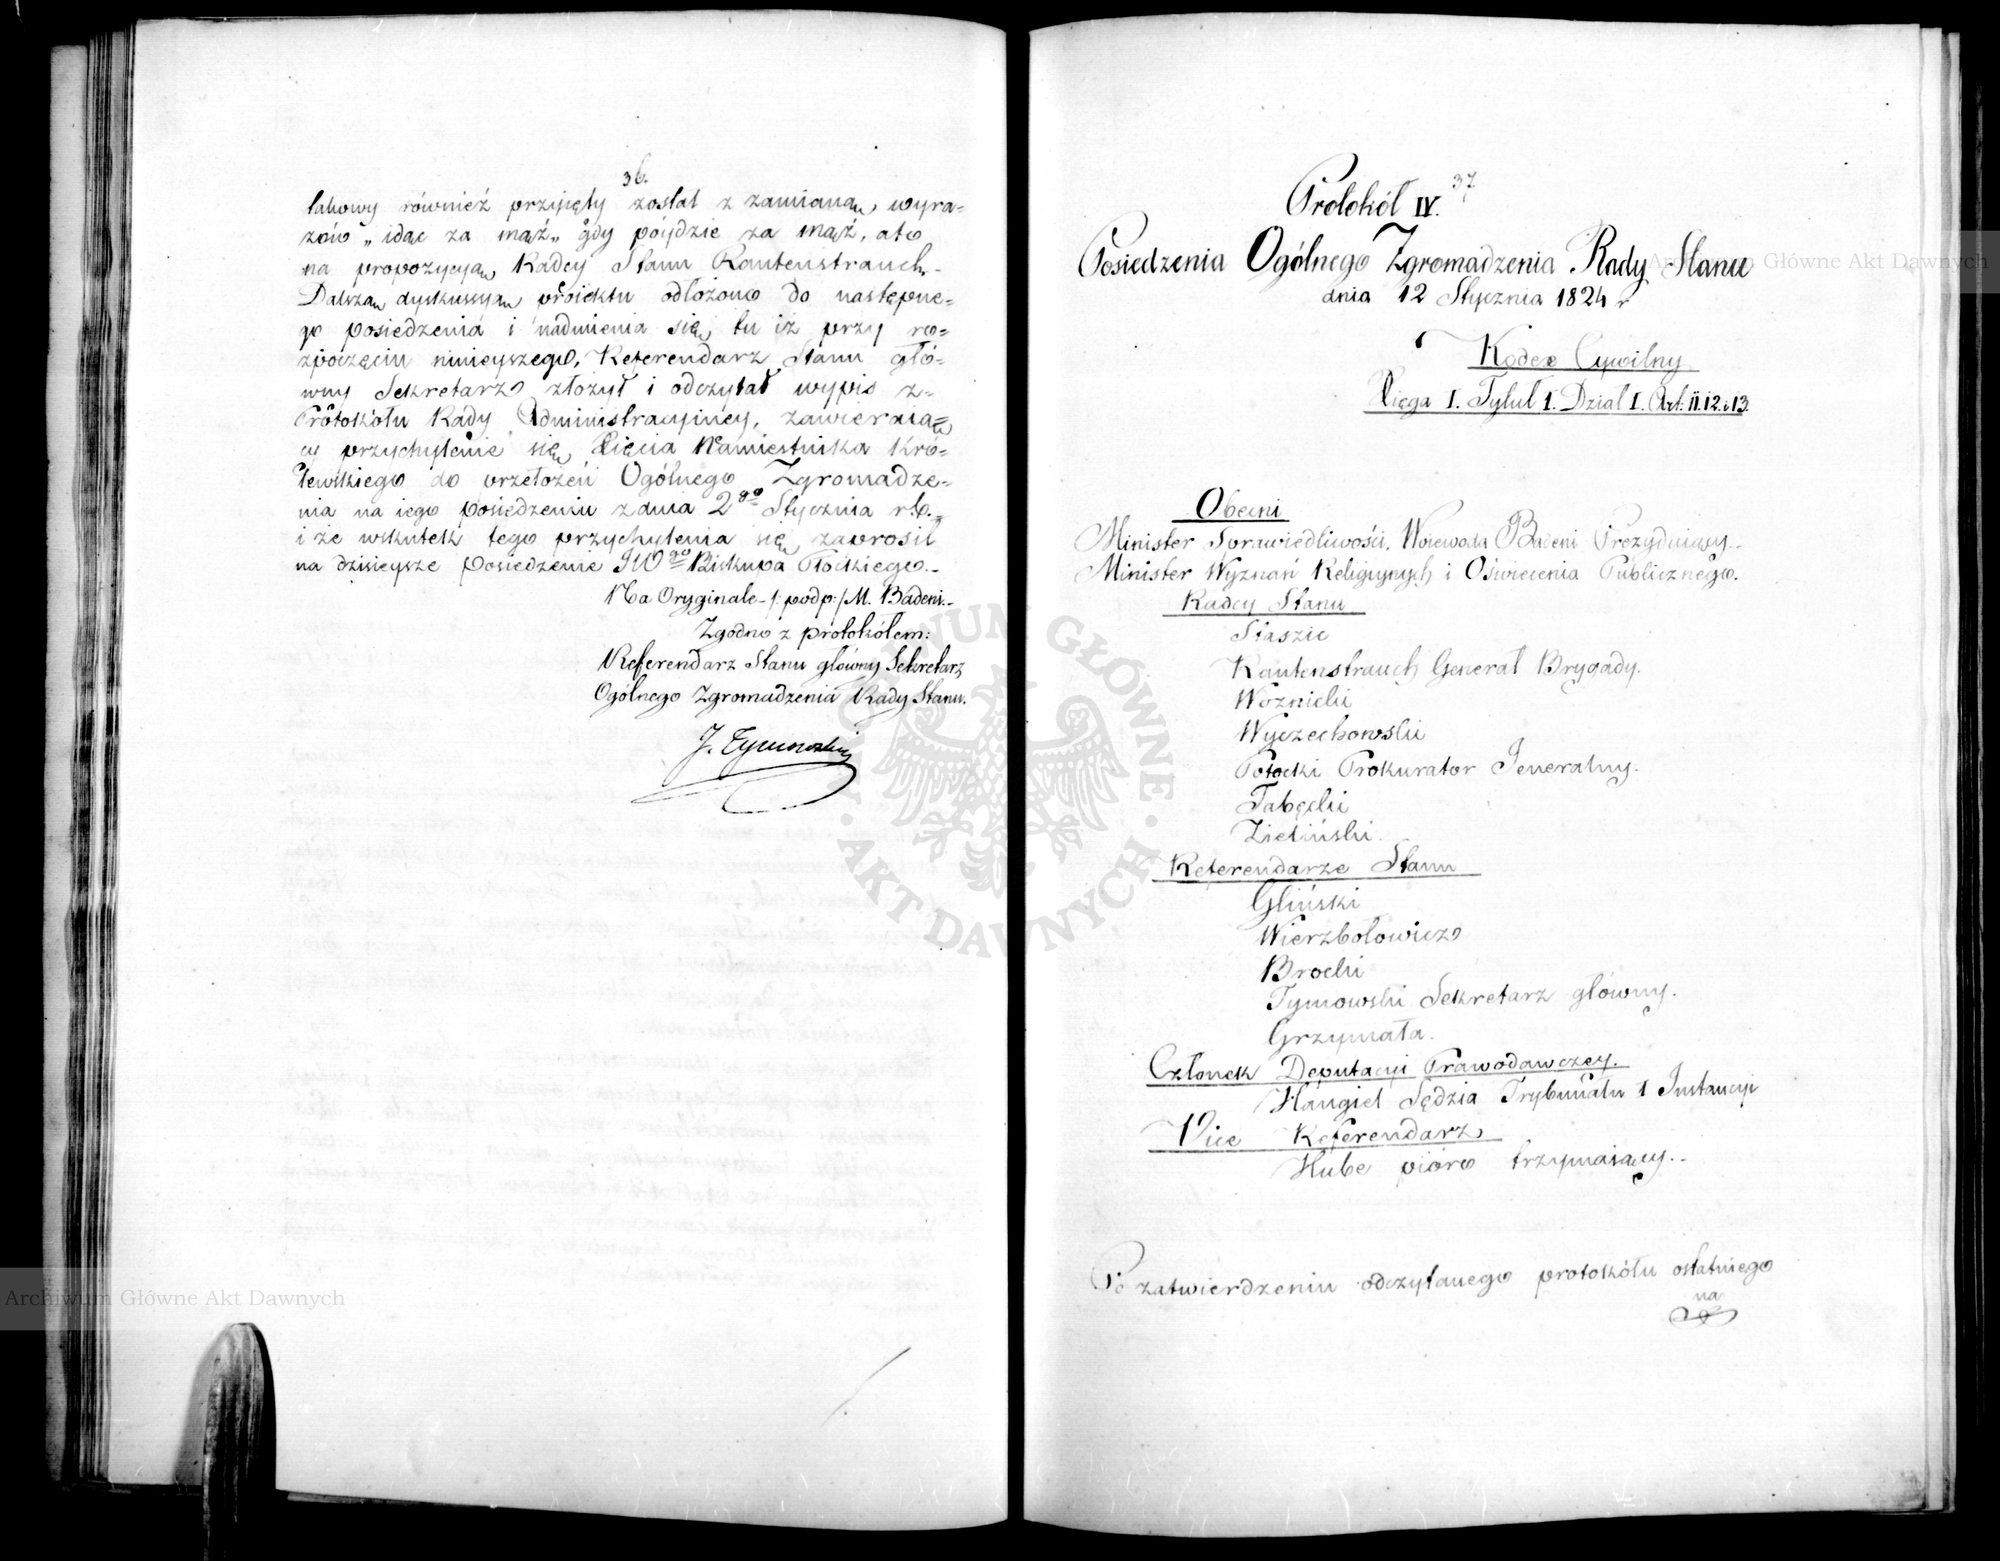 36.
takowy również przyjęty został z zamianą wyra=
zów „idąc za mąż„ gdy póydzie za mąż, a to
na propozycyą Radcy Stanu Rautenstrauch.
Dalszą dyskussyą proiektu odłożono do następne=
go posiedzenia i nadmienia się tu iż przy ro=
zpoczęciu ninieyszego, Referendarz Stanu głó=
wny Sekretarz złożył i odczytał wypis z
Protokółu Rady Administracyiney, zawieraią=
cy przychylenie się Xięcia Namiestnika Kró=
lewskiego do przełożeń Ogólnego Zgromadze=
nia na iego posiedzeniu z dnia 2go Stycznia rb.
i że wskutek tego przychylenia się zaprosił
na dzisieysze posiedzenie JWgo Biskupa Płockiego.
Na Oryginale /:podp:/ M. Badeni.
Zgodno z protokółem:
Referendarz Stanu główny Sekretarz
Ogólnego Zgromadzenia Rady Stanu.
J. Tymowski
37
Protokół IV.
Posiedzenia Ogólnego Zgromadzenia Rady Stanu
dnia 12 Stycznia 1824 r
Kodex Cywilny
Xięga I. Tytuł I. Dział I. Art: 11. 12. i 13.
Obecni
Minister Sprawiedliwości, Woiewoda Badeni Prezyduiący.
Minister Wyznań Religiynych i Oświecenia Publicznego.
Radcy Stanu
Staszic
Rautenstrauch Generał Brygady.
Woźnicki
Wyczechowski
Potocki Prokurator Jeneralny.
Tabęcki
Zieliński.
Referendarze Stanu
Gliński
Wierzbołowicz
Brocki
Tymowski Sekretarz główny.
Grzymała.
Członek Deputacyi Prawodawczey.
Hangiel Sędzia Trybunału 1 Instancyi
Vice Referendarz
Hube pióro trzymaiący.
Po zatwierdzeniu odczytanego protokółu ostatniego
na
Archiwum Główne Akt Dawnych
Archiwum Główne Akt Dawnych
ARCHIWUM GŁÓWNE AKT DAWNYCH